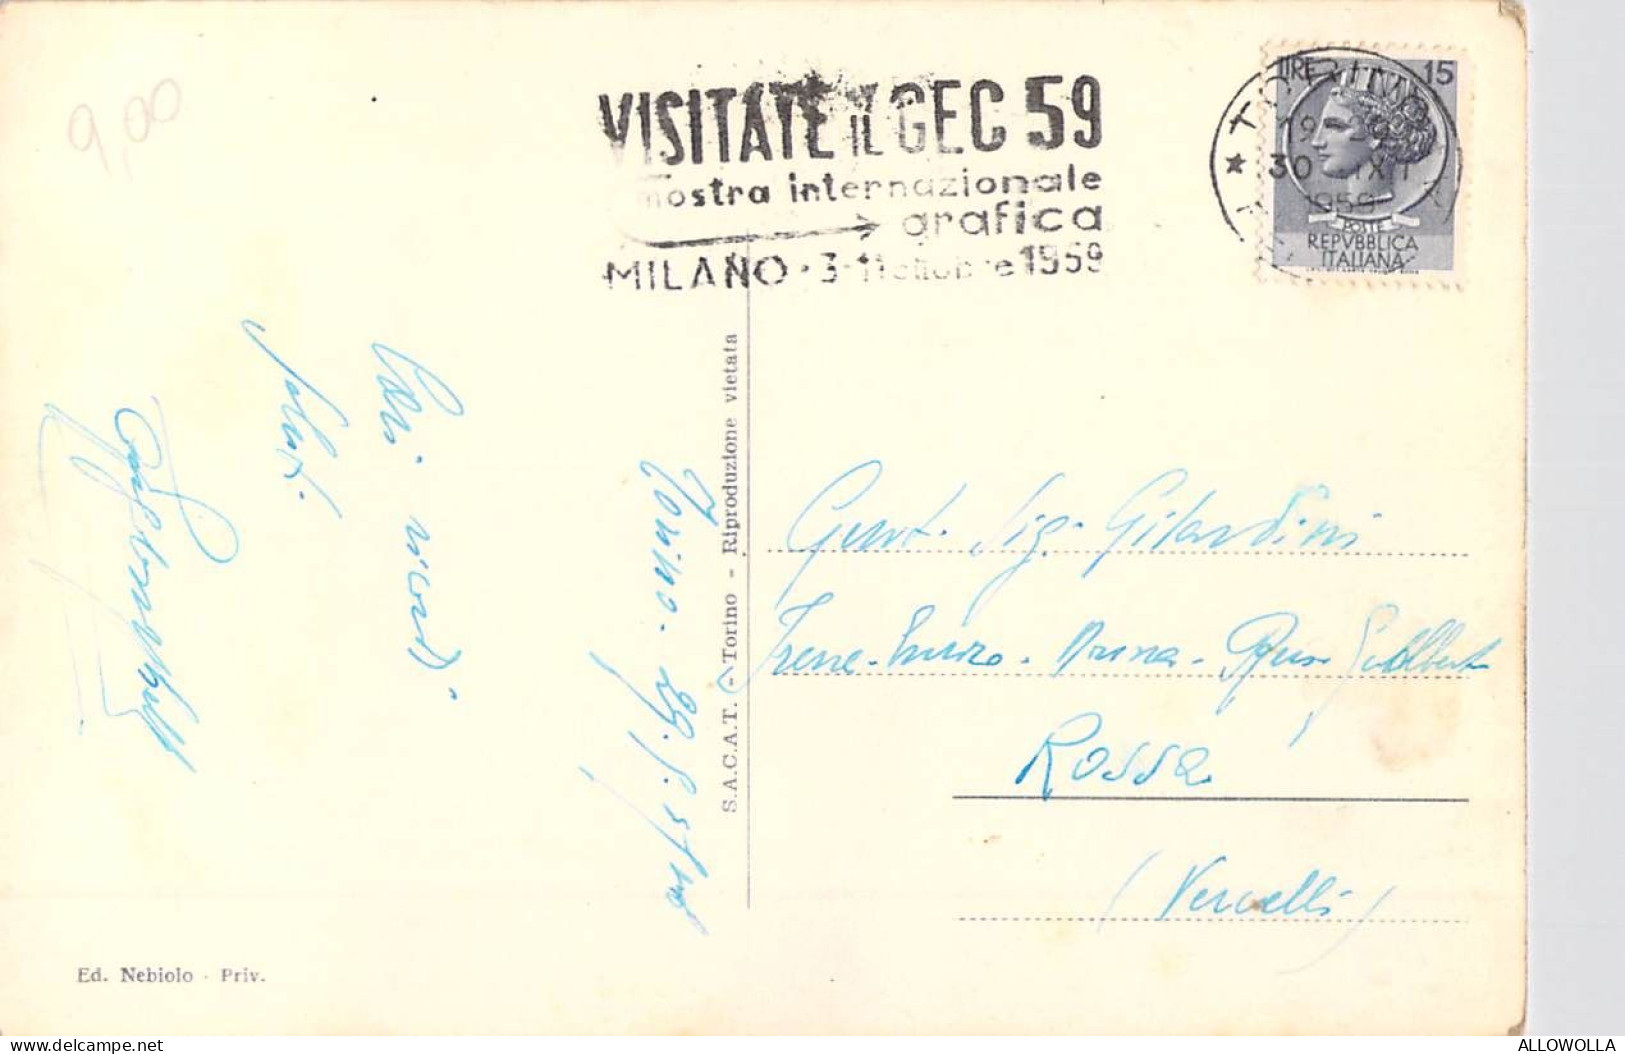 9,00
VISITATE IL GEC 59
mostra internazionale
grafica
MILANO · 3-11 ottobre 1959
LIRE 15
TORINO
19
30 IX
1959
POSTE
REPVBBLICA
ITALIANA
Cari ricordi
saluti
Torino - 29.
S.A.C.A.T. - Torino - Riproduzione vietata
Gent. Sig. Gilardini
Irene - Enrico -
Rossa
(Vercelli)
Ed. Nebiolo - Priv.
ALLOWOLLA
www.delcampe.net